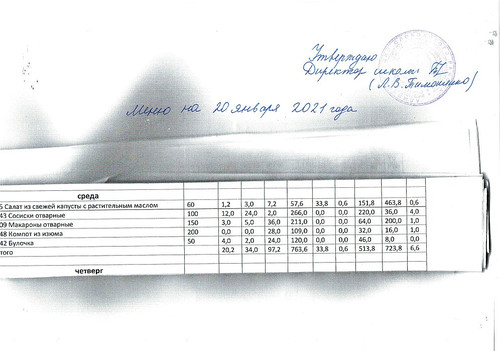 Утверждаю
Директор школы
(Л.В.Тимошенко)
Меню на 20 января 2021 года
среда
5 Салат из свежей капусты с растительным маслом 60 1,2 3,0 7,2 57,6 33,8 0,6 151,8 463,8 0,6
43 Сосиски отварные 100 12,0 24,0 2,0 266,0 0,0 0,0 220,0 36,0 4,0
09 Макароны отварные 150 3,0 5,0 36,0 211,0 0,0 0,0 64,0 200,0 1,0
48 Компот из изюма 200 0,0 0,0 28,0 109,0 0,0 0,0 32,0 16,0 1,0
42 Булочка 50 4,0 2,0 24,0 120,0 0,0 0,0 46,0 8,0 0,0
того 20,2 34,0 97,2 763,6 33,8 0,6 513,8 723,8 6,6
четверг